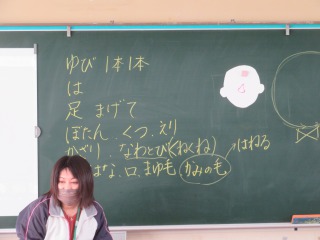 ゆび 1本1本
は
足 まげて
ぼたん、くつ、えり
かざり、なわとび(くねくね)→はねる
はな、口、まゆ毛 かみの毛